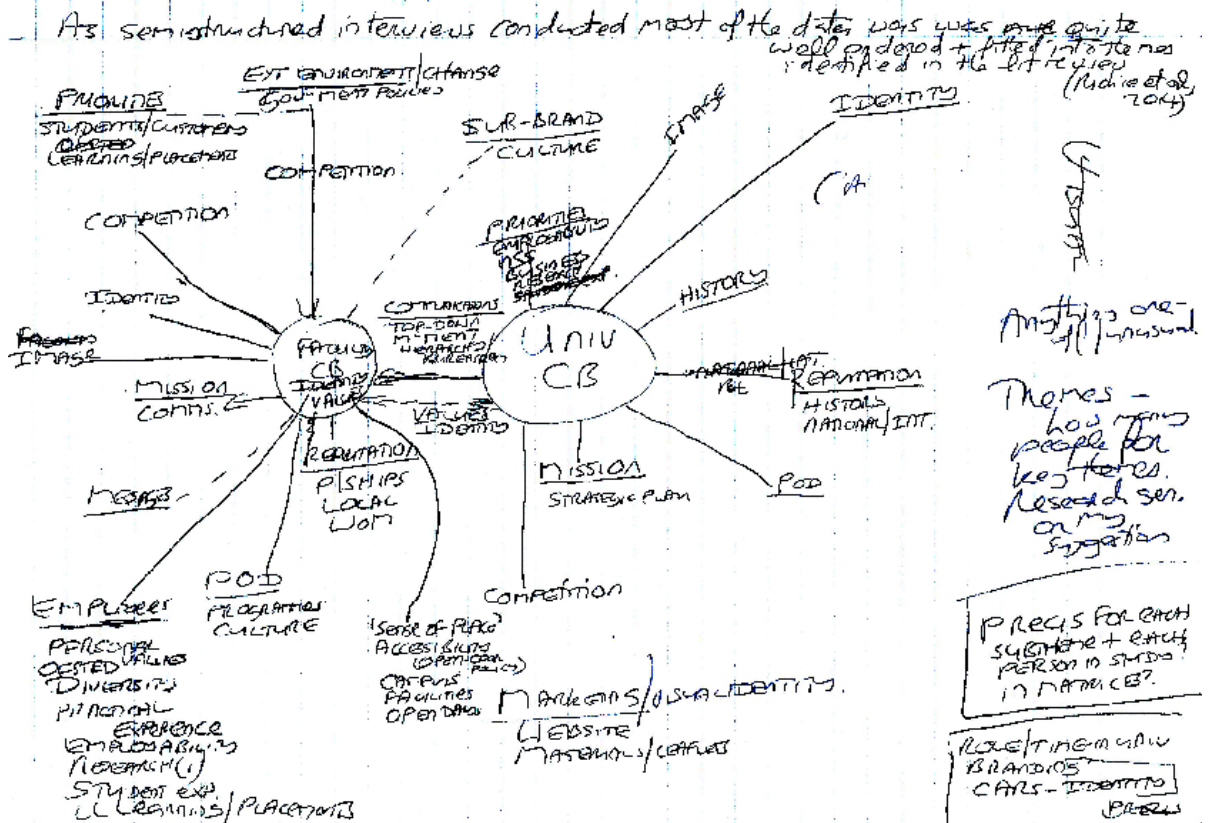 As semistructured interviews conducted most of the data was was quite
well ordered + fitted into themes
identified in the lit review
(Ritchie et al,
2014)
PRIORITIES
STUDENTS/CUSTOMERS
LEARNING/PLACEMENTS
EXT ENVIRONMENT/CHANGE
GOV-MENT POLICIES
COMPETITION
SUB-BRAND
CULTURE
IMAGE
IDENTITY
COMPETITION
IDENTITY
IMAGE
MISSION
COMMS.
MESSAGE
FACULTY
CB
IDENTITY
VALUES
COMMUNICATIONS
TOP-DOWN
M-MENT
HIERARCHY
VALUES
IDENTITY
PRIORITIES
EMPLOYABILITY
NSS
BUSINESS
RESEARCH
Univ
CB
HISTORY
REPUTATION
HISTORY
NATIONAL/INT.
POD
MISSION
STRATEGIC PLAN
COMPETITION
REPUTATION
P/SHIPS
LOCAL
WOM
EMPLOYEES
PERSONAL
VALUES
DIVERSITY
PRACTICAL
EXPERIENCE
EMPLOYABILITY
RESEARCH(1)
STUDENT EXP.
LEARNING/PLACEMENTS
POD
PROGRAMMES
CULTURE
'SENSE OF PLACE'
ACCESSIBILITY
(OPEN-DOOR
POLICY)
CAMPUS
FACILITIES
OPEN DAYS
MARKETING/VISUAL IDENTITY.
WEBSITE
MATERIALS/LEAFLETS
Anything one-
off/unusual
Themes -
how many
people for
key themes.
Research sen.
on my
suggestion
PRECIS FOR EACH
SUBTHEME + EACH
PERSON IN STUDY?
IN MATRICES?
ROLE/TIME IN UNIV
BRANDING
CARS - IDENTITY